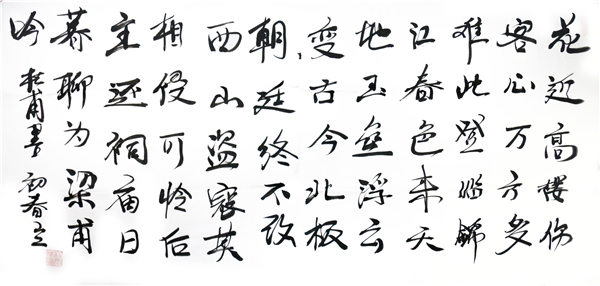 花近高樓伤
客心万方多
难此登临锦
江春色来天
地玉垒浮云
变古今北极
朝廷终不改
西山盗寇莫
相侵可怜后
主还祠庙日
暮聊为梁甫
吟 杜甫 初春